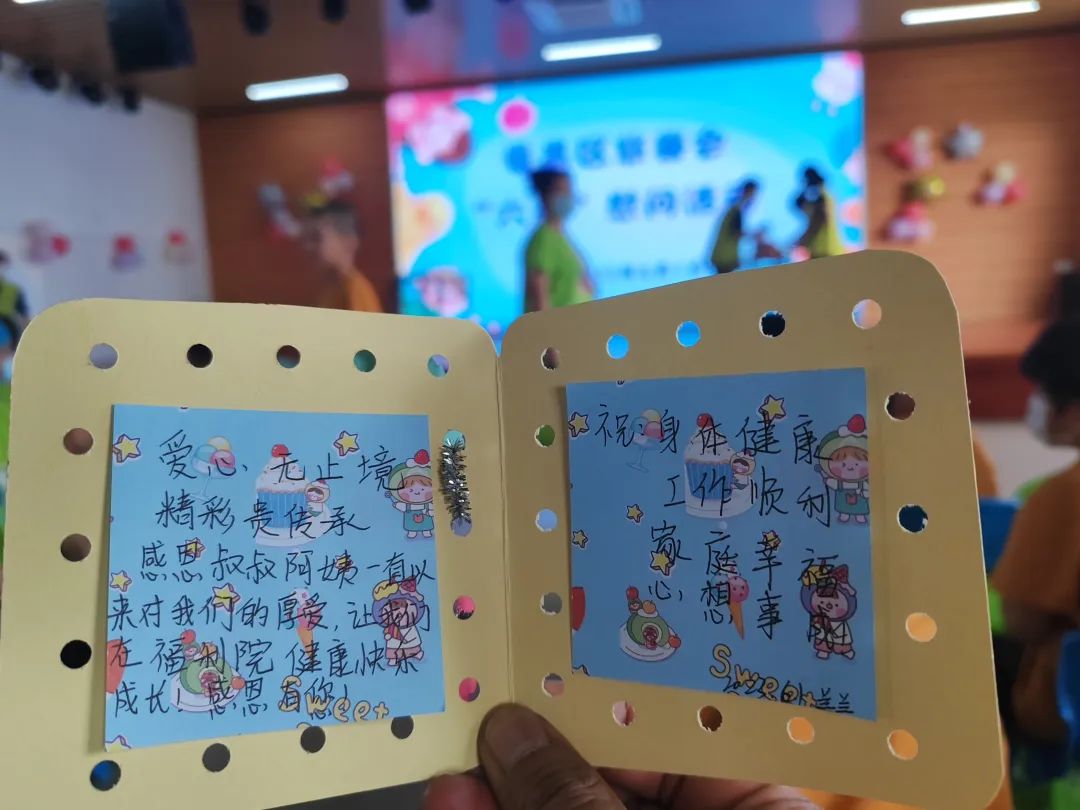 爱心无止境
精彩贵传承
感恩叔叔阿姨一直以
来对我们的厚爱,让我们
在福利院健康快乐
成长 感恩有您!
Sweet
祝:身体健康
工作顺利
家庭幸福
心想事成
Sweet
兰兰
区慈善会
慰问活动